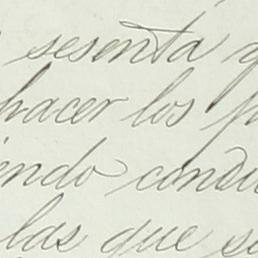 sesenta
hacer los
endo condu
las que se